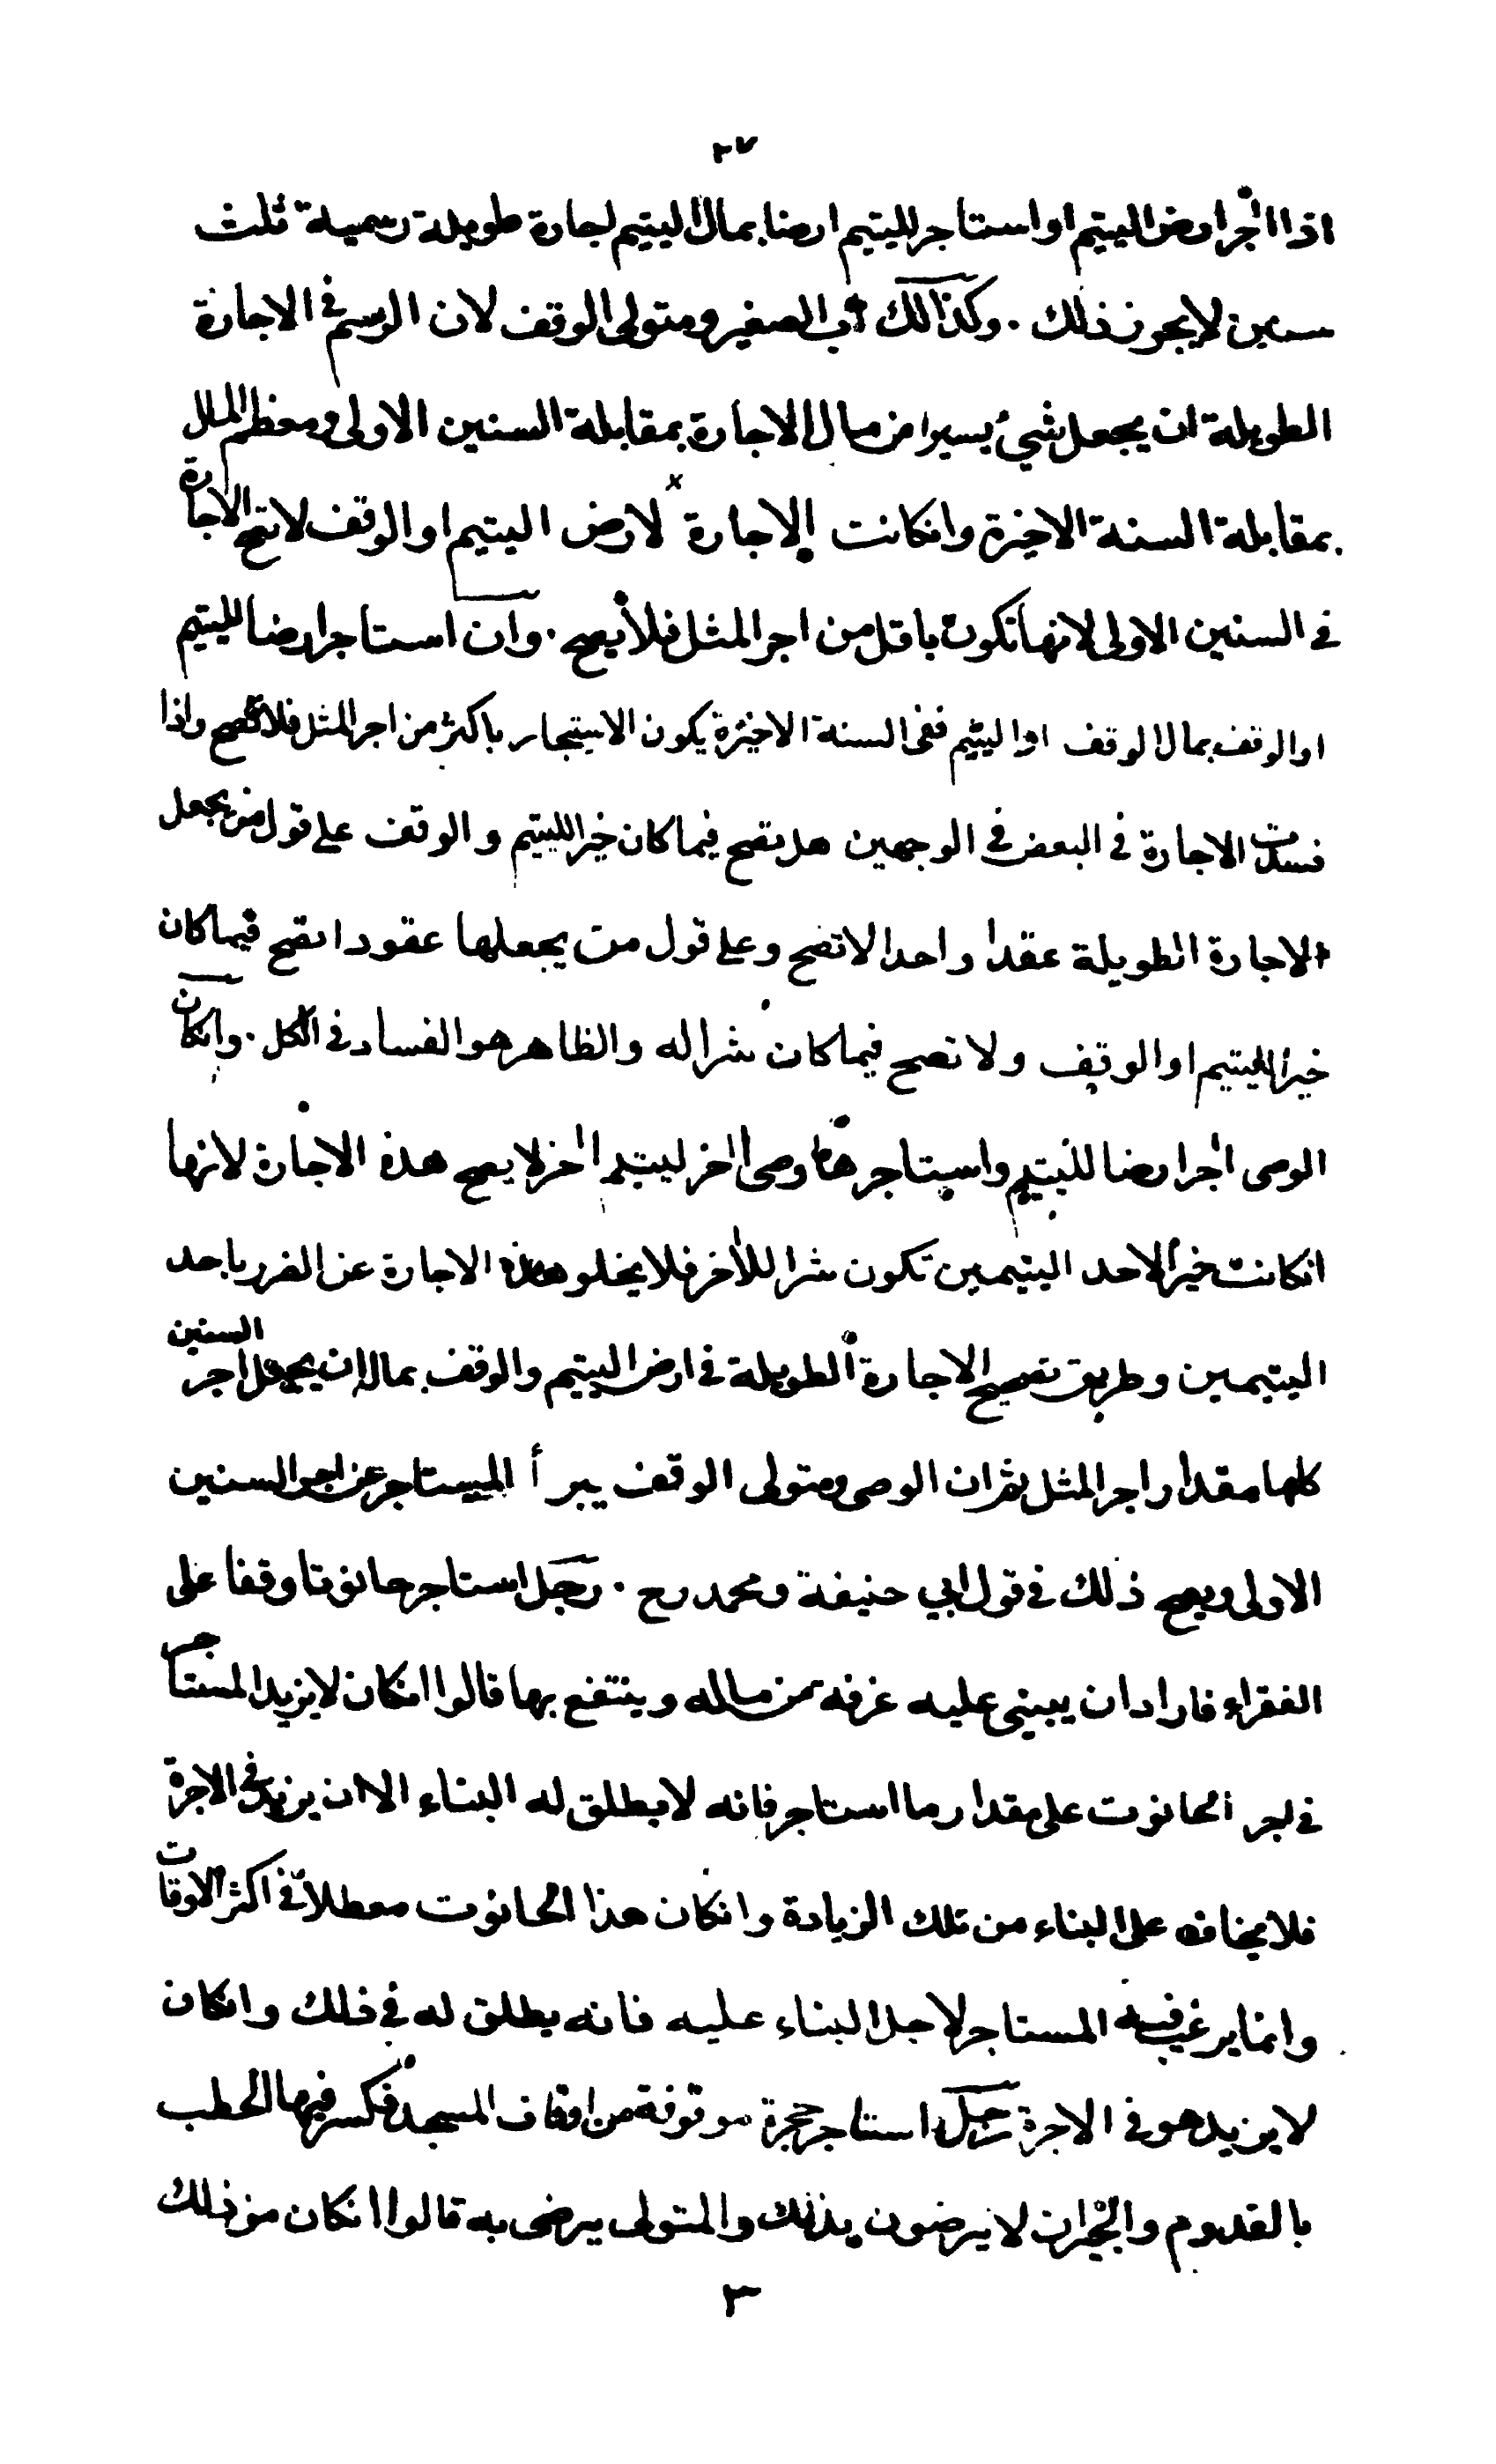 ٢٧
اذا اٰجر ارض اليتيم او استاجر لليتيم ارضا بمال اليتيم اجارة طويلة رسمية ثلث
سنين لا يجوز ذلك . وكذلك اب الصغير ومتولى الوقف لان الرسم فى الاجارة
الطويلة ان يجعل شئ يسيرا من مال الاجارة بمقابلة السنين الاولى ومعظم المال
بمقابلة السنة الاخيرة وانكانت الاجارة لارض اليتيم او الوقف لا تصح الاجارة
فى السنين الاولى لانها تكون باقل من اجر المثل فلا يصح . وان استاجر ارضا لليتيم
او الوقف بمال الوقف او اليتيم ففى السنة الاخيرة يكون الاستيجار باكثر من اجر المثل فلا تصح واذا
فسدت الاجارة فى البعض فى الوجهين هل تصح فيما كان خيرا لليتيم و الوقف على قول من يجعل
الاجارة الطويلة عقدا واحدا لا تصح وعلى قول من يجعلها عقودا تصح فيما كان
خيرا لليتيم او الوقف ولا تصح فيما كان شرا له والظاهر هو الفساد فى الكل . وانكان
الوصى اٰجر ارضا لليتيم واستاجرها وصى اٰخر ليتيم اٰخر لا يصح هذه الاجارة لانها
انكانت خيرا لاحد اليتيمين تكون شرا للاٰخر فلا يخلو هذه الاجارة عن الضرر باحد
اليتيمين وطريق تصحيح الاجارة الطويلة فى ارض اليتيم والوقف بماله ان يجعل اجر السنين
كلها مقدار اجر المثل ثم ان الوصى ومتولى الوقف يبرأ المستاجر عن اجر السنين
الاولى ويصح ذلك فى قول ابي حنيفة ومحمد رح . رجل استاجر حانوتا وقفا على
الفقراء فاراد ان يبنى عليه غرفه من ماله وينتفع بها قالوا انكان لا يزيد المستاجر
فى اجر الحانوت على مقدار ما استاجر فانه لا يطلق له البناء الا ان يزيد فى الاجرة
فلا يخافه على البناء من تلك الزيادة وانكان هذا الحانوت معطلا فى اكثر الاوقات
وانما يرغب فيه المستاجر لاجل البناء عليه فانه يطلق له فى ذلك وانكان
لا يزيد هو فى الاجرة رجل استاجر حجرة موقوفة من اوقاف المسجد فكسر فيها الحطب
بالقدوم والجيران لا يرضون بذلك والمتولى يرضى به قالوا انكان من ذلك
٣